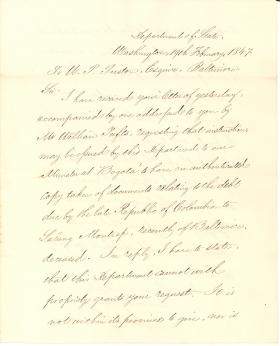 Department of State.
Washington, 19th February, 1847.
To W. P. Preston, Esquire. Baltimore
Sir.
I have received your letter of yesterday,
accompanied by one addressed to you by
Mr William requesting that instructions
may be issued by this Department to our
Minister at Bogota to have an authenticated
copy taken of documents relating to the debt
due by the late Republic of Colombia to
recently of Baltimore,
deceased. In reply, I have to state,
that this Department cannot with
propriety grant your request. It is
not within its province to give, nor is